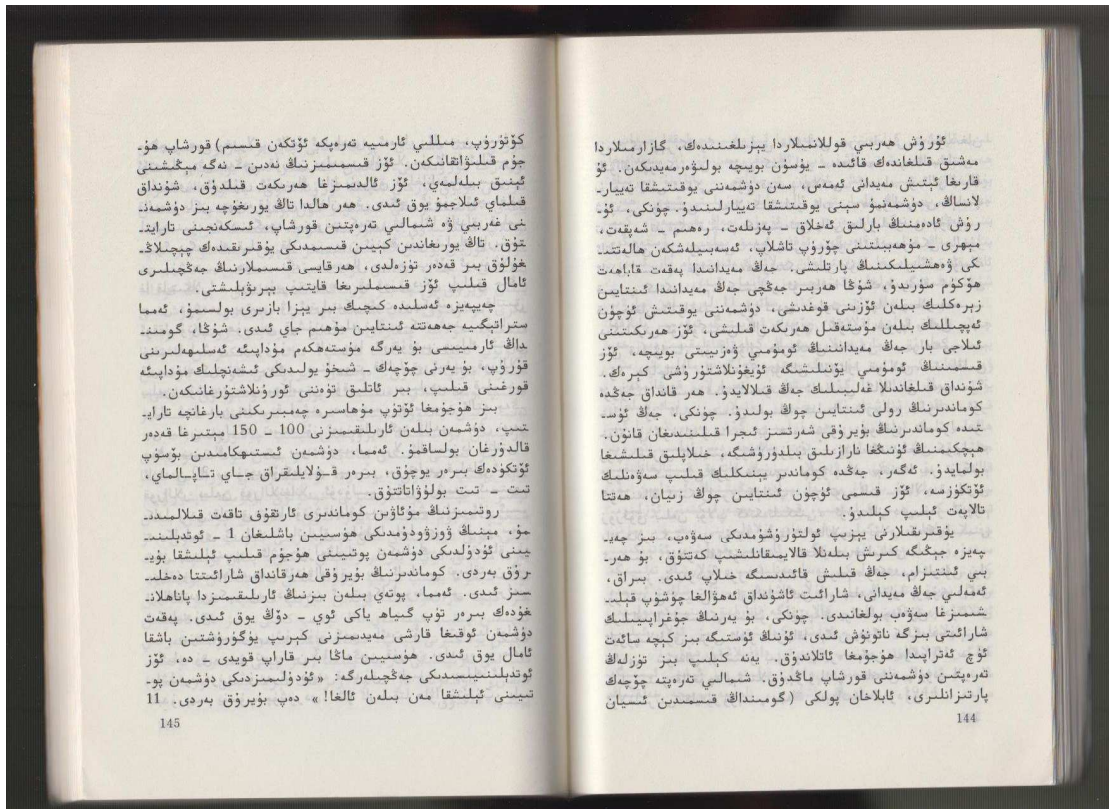 ئۇرۇش ھەربىي قوللانمىلاردا يېزىلغىنىدەك، گازارمىلاردا
مەشىق قىلغاندەك قائىدە – يۈسۈن بويىچە بولىۋەرمەيدىكەن. ئۇ
قارىغا ئېتىش مەيدانى ئەمەس، سەن دۈشمەننى يوقىتىشقا تەييار-
لانساڭ، دۈشمەنمۇ سېنى يوقىتىشقا تەييارلىنىدۇ. چۈنكى، ئۇ-
رۇش ئادەمنىڭ بارلىق ئەخلاق – پەزىلەت، رەھىم – شەپقەت،
مېھرى – مۇھەببىتىنى چۆرۈپ تاشلاپ، ئەسەبىيلەشكەن ھالەتتى-
كى ۋەھشىيلىكىنىڭ پارتلىشى. جەڭ مەيدانىدا پەقەت قاباھەت
ھۆكۈم سۈرىدۇ، شۇڭا ھەربىر جەڭچى جەڭ مەيدانىدا ئىنتايىن
زېرەكلىك بىلەن ئۆزىنى قوغدىشى، دۈشمەننى يوقىتىش ئۈچۈن
ئەپچىللىك بىلەن مۇستەقىل ھەرىكەت قىلىشى، ئۆز ھەرىكىتىنى
ئىلاجى بار جەڭ مەيدانىنىڭ ئومۇمىي ۋەزىيىتى بويىچە، ئۆز
قىسمىنىڭ ئومۇمىي يۆنىلىشىگە ئۇيغۇنلاشتۇرۇشى كېرەك.
شۇنداق قىلغاندىلا غەلىبىلىك جەڭ قىلالايدۇ. ھەر قانداق جەڭدە
كوماندىرنىڭ رولى ئىنتايىن چوڭ بولىدۇ. چۈنكى، جەڭ ئۈس-
تىدە كوماندىرنىڭ بۇيرۇقى شەرتسىز ئىجرا قىلىنىدىغان قانۇن.
ھېچكىمنىڭ ئۇنىڭغا نارازىلىق بىلدۈرۈشىگە، خىلاپلىق قىلىشىغا
بولمايدۇ. ئەگەر، جەڭدە كوماندىر يېنىكلىك قىلىپ سەۋەنلىك
ئۆتكۈزسە، ئۆز قىسمى ئۈچۈن ئىنتايىن چوڭ زىيان، ھەتتا
تالاپەت ئېلىپ كېلىدۇ.
يۇقىرىقىلارنى يېزىپ ئولتۇرۇشۇمدىكى سەۋەب، بىز جەي-
پەيزە جېڭىگە كىرىش بىلەنلا قالايمىقانلىشىپ كەتتۇق، بۇ ھەر-
بىي ئىنتىزام، جەڭ قىلىش قائىدىسىگە خىلاپ ئىدى. بىراق،
ئەمەلىي جەڭ مەيدانى، شارائىت ئاشۇنداق ئەھۋالغا چۈشۈپ قېلى-
شىمىزغا سەۋەب بولغانىدى. چۈنكى، بۇ يەرنىڭ جۇغراپىيىلىك
شارائىتى بىزگە ناتونۇش ئىدى، ئۇنىڭ ئۈستىگە بىز كېچە سائەت
ئۈچ ئەتراپىدا ھۇجۇمغا ئاتلاندۇق. يەنە كېلىپ بىز تۈزلەڭ
تەرەپتىن دۈشمەننى قورشاپ ماڭدۇق. شىمالىي تەرەپتە چۆچەك
پارتىزانلىرى، ئابلاخان پولكى (گومىنداڭ قىسمىدىن ئىسيان
144
كۆتۈرۈپ، مىللىي ئارمىيە تەرەپكە ئۆتكەن قىسىم) قورشاپ ھۇ-
جۇم قىلىۋاتقانىكەن. ئۆز قىسمىمىزنىڭ نەدىن – نەگە مېڭىشىنى
ئېنىق بىلەلمەي، ئۆز ئالدىمىزغا ھەرىكەت قىلدۇق، شۇنداق
قىلماي ئىلاجمۇ يوق ئىدى. ھەر ھالدا تاڭ يورىغۇچە بىز دۈشمەن-
نى غەربىي ۋە شىمالىي تەرەپتىن قورشاپ، ئىسكەنجىنى تارايت-
تۇق. تاڭ يورىغاندىن كېيىن قىسىمدىكى يۇقىرىقىدەك چېچىلاڭ-
غۇلۇق بىر قەدەر تۈزەلدى، ھەرقايسى قىسىملارنىڭ جەڭچىلىرى
ئامال قىلىپ ئۆز قىسىملىرىغا قايتىپ بېرىۋېلىشتى.
جەيپەيزە ئەسلىدە كىچىك بىر يېزا بازىرى بولسىمۇ، ئەمما
ستراتېگىيە جەھەتتە ئىنتايىن مۇھىم جاي ئىدى. شۇڭا، گومىن-
داڭ ئارمىيىسى بۇ يەرگە مۇستەھكەم مۇداپىئە ئەسلىھەلىرىنى
قۇرۇپ، بۇ يەرنى چۆچەك – شىخۇ يولىدىكى ئىشەنچلىك مۇداپىئە
قورغىنى قىلىپ، بىر ئاتلىق تۇەننى ئورۇنلاشتۇرغانىكەن.
بىز ھۇجۇمغا ئۆتۈپ مۇھاسىرە چەمبىرىكىنى بارغانچە تاراي-
تىپ، دۈشمەن بىلەن ئارىلىقىمىزنى 100 – 150 مېتىرغا قەدەر
قالدۇرغان بولساقمۇ. ئەمما، دۈشمەن ئىستىھكامىدىن بۆسۈپ
ئۆتكۈدەك بىرەر يوچۇق، بىرەر قولايلىقراق جاي تاپالماي،
تىت – تىت بولۇۋاتاتتۇق.
روتىمىزنىڭ مۇئاۋىن كوماندىرى ئارتۇق تاقەت قىلالمىدى-
مۇ، مېنىڭ ۋزۋودۇمدىكى ھۈسىيىن باشلىغان 1 – ئوتدېلىنى-
يىنى ئۇدۇلدىكى دۈشمەن پوتىيىنى ھۇجۇم قىلىپ ئېلىشقا بۇي-
رۇق بەردى. كوماندىرنىڭ بۇيرۇقى ھەرقانداق شارائىتتا دەخلى-
سىز ئىدى. ئەمما، پوتەي بىلەن بىزنىڭ ئارىلىقىمىزدا پاناھلان-
غۇدەك بىرەر تۈپ گىياھ ياكى ئوي – دۆڭ يوق ئىدى. پەقەت
دۈشمەن ئوقىغا قارشى مەيدىمىزنى كېرىپ يۈگۈرۈشتىن باشقا
ئامال يوق ئىدى. ھۈسىيىن ماڭا بىر قاراپ قويدى – دە، ئۆز
ئوتدېلىنىيىسىدىكى جەڭچىلەرگە: «ئۇدۇلىمىزدىكى دۈشمەن پو-
تىيىنى ئېلىشقا مەن بىلەن ئالغا!» دەپ بۇيرۇق بەردى. 11
145